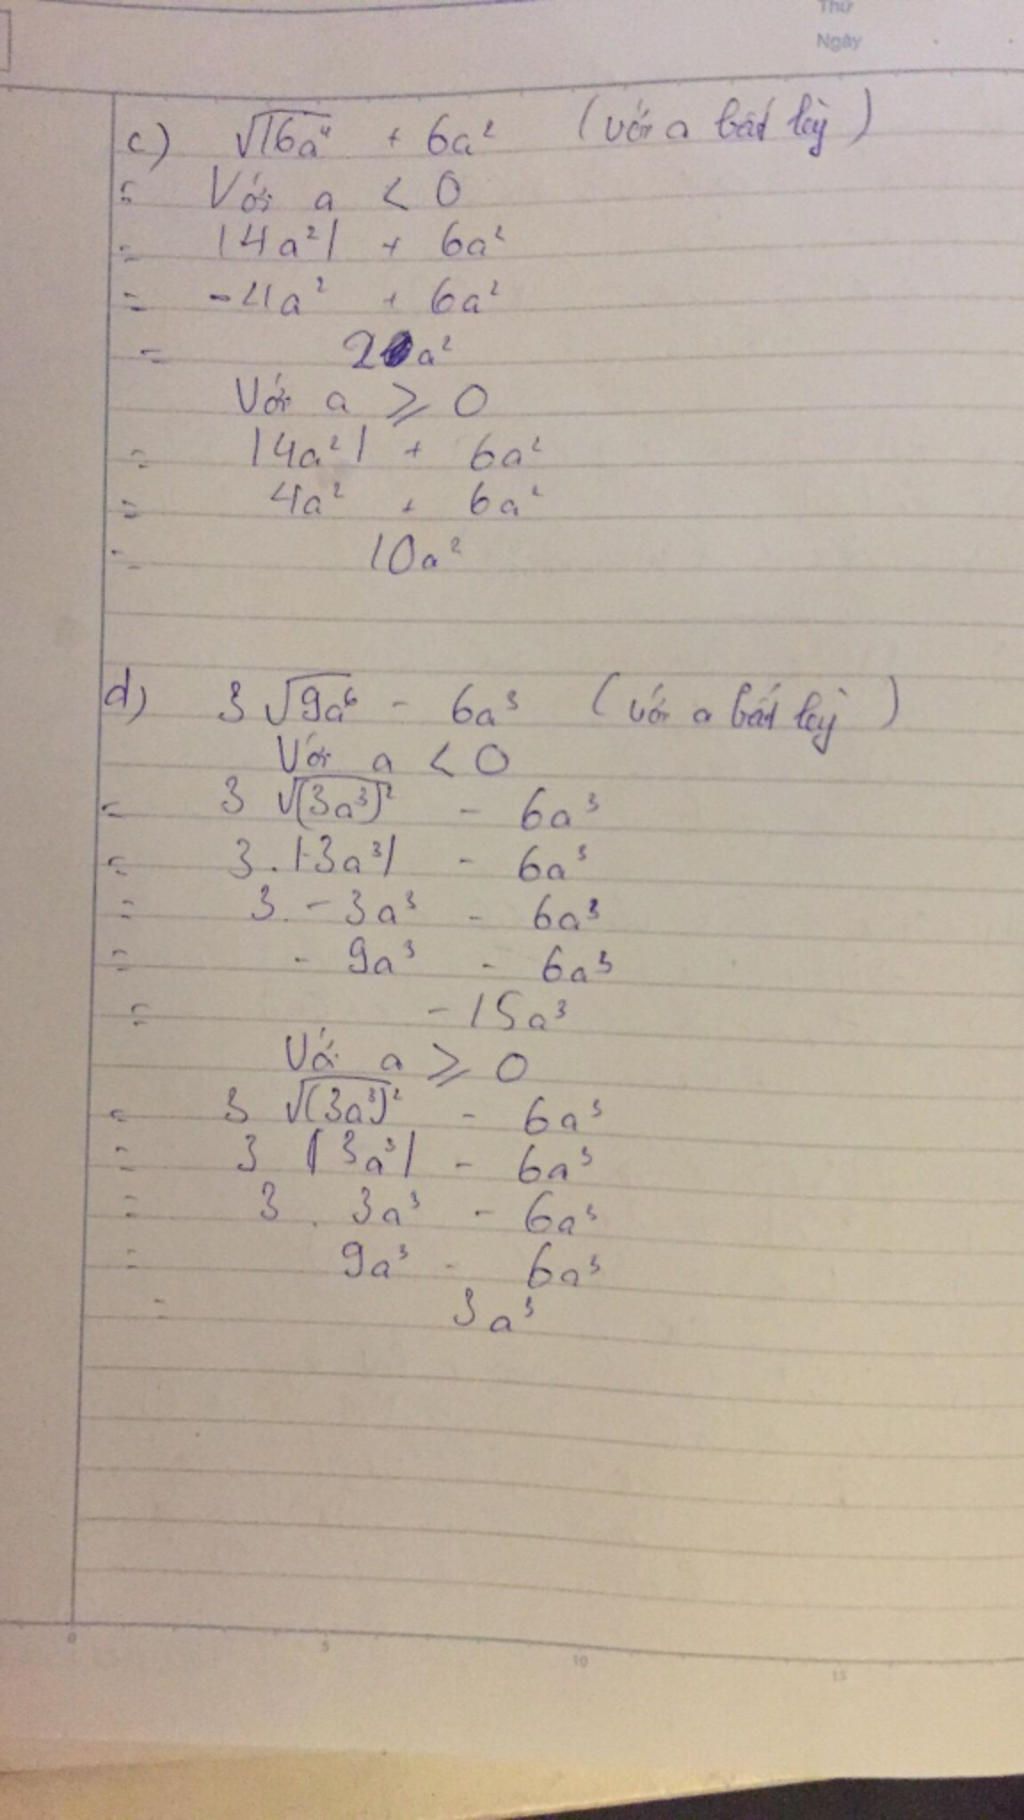 Thứ
Ngày
c) √16a⁴ + 6a² (với a bất kỳ)
= Với a < 0
= |4a²| + 6a²
= -4a² + 6a²
= 2a²
Với a ⩾ 0
= |4a²| + 6a²
= 4a² + 6a²
= 10a²
d) 3 √9a⁶ - 6a³ (với a bất kỳ)
Với a < 0
= 3 √(3a³)² - 6a³
= 3.|-3a³| - 6a³
= 3. - 3a³ - 6a³
= - 9a³ - 6a³
= -15a³
Với a ⩾ 0
= 3 √(3a³)² - 6a³
= 3 |3a³| - 6a³
= 3 . 3a³ - 6a³
= 9a³ - 6a³
= 3a³
0 5 10 15